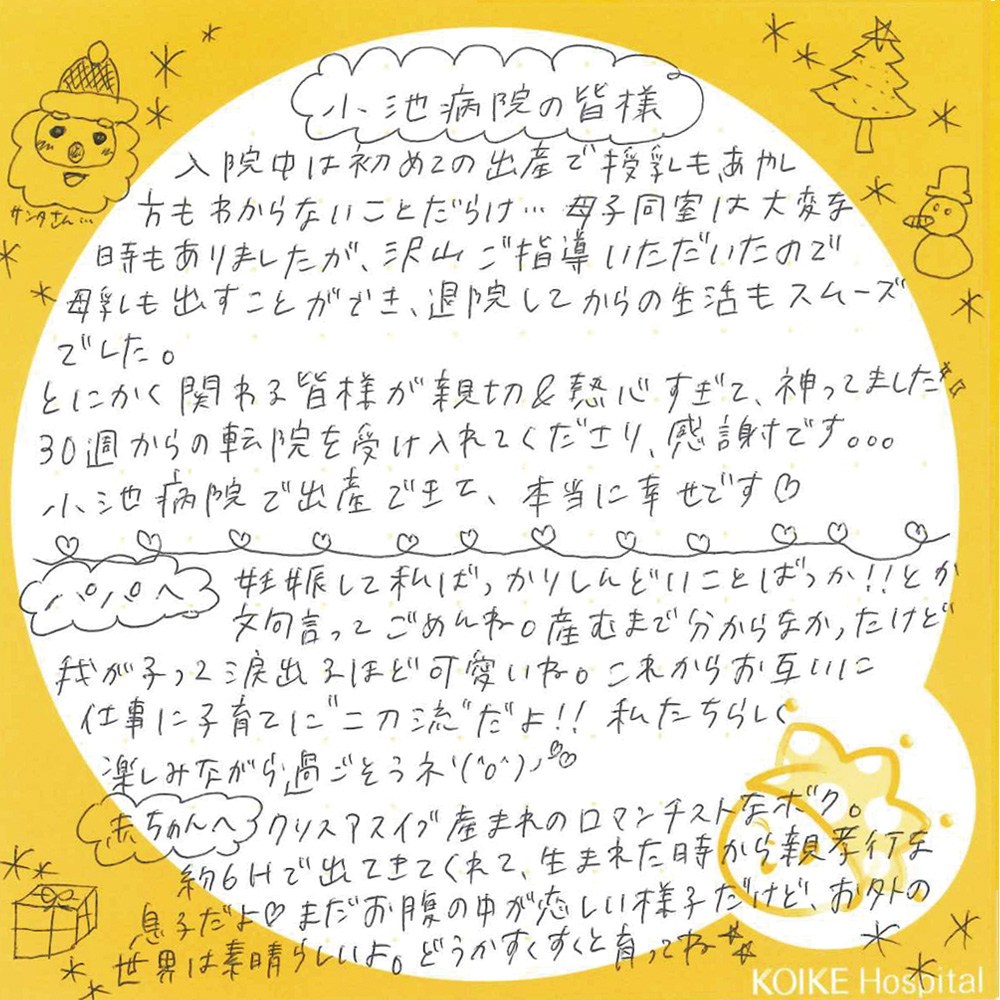 小池病院の皆様
サンタさん…
入院中は初めての出産で授乳も、あやし
方もわからないことだらけ… 母子同室は大変な
時もありましたが、沢山ご指導いただいたので
母乳も出すことができ、退院してからの生活もスムーズ
でした。
とにかく関わる皆様が親切&熱心すぎて、神ってました
30週からの転院を受け入れてくださり、感謝です。。。
小池病院で出産できて、本当に幸せです♡
パパへ 妊娠して私ばっかりしんどいことばっか!!とか
文句言ってごめんね。産むまで分からなかったけど
我が子って涙出るほど可愛いね。これからお互いに
仕事に子育てに"二刀流"だよ!! 私たちらしく
楽しみながら過ごそうネ!(^o^)ノ
赤ちゃんへ クリスマスイヴ産まれのロマンチストなボク。
約6Hで出てきてくれて、生まれた時から親孝行な
息子だよ♡ まだお腹の中が恋しい様子だけど、お外の
世界は素晴らしいよ。どうかすくすくと育ってね
KOIKE Hospital